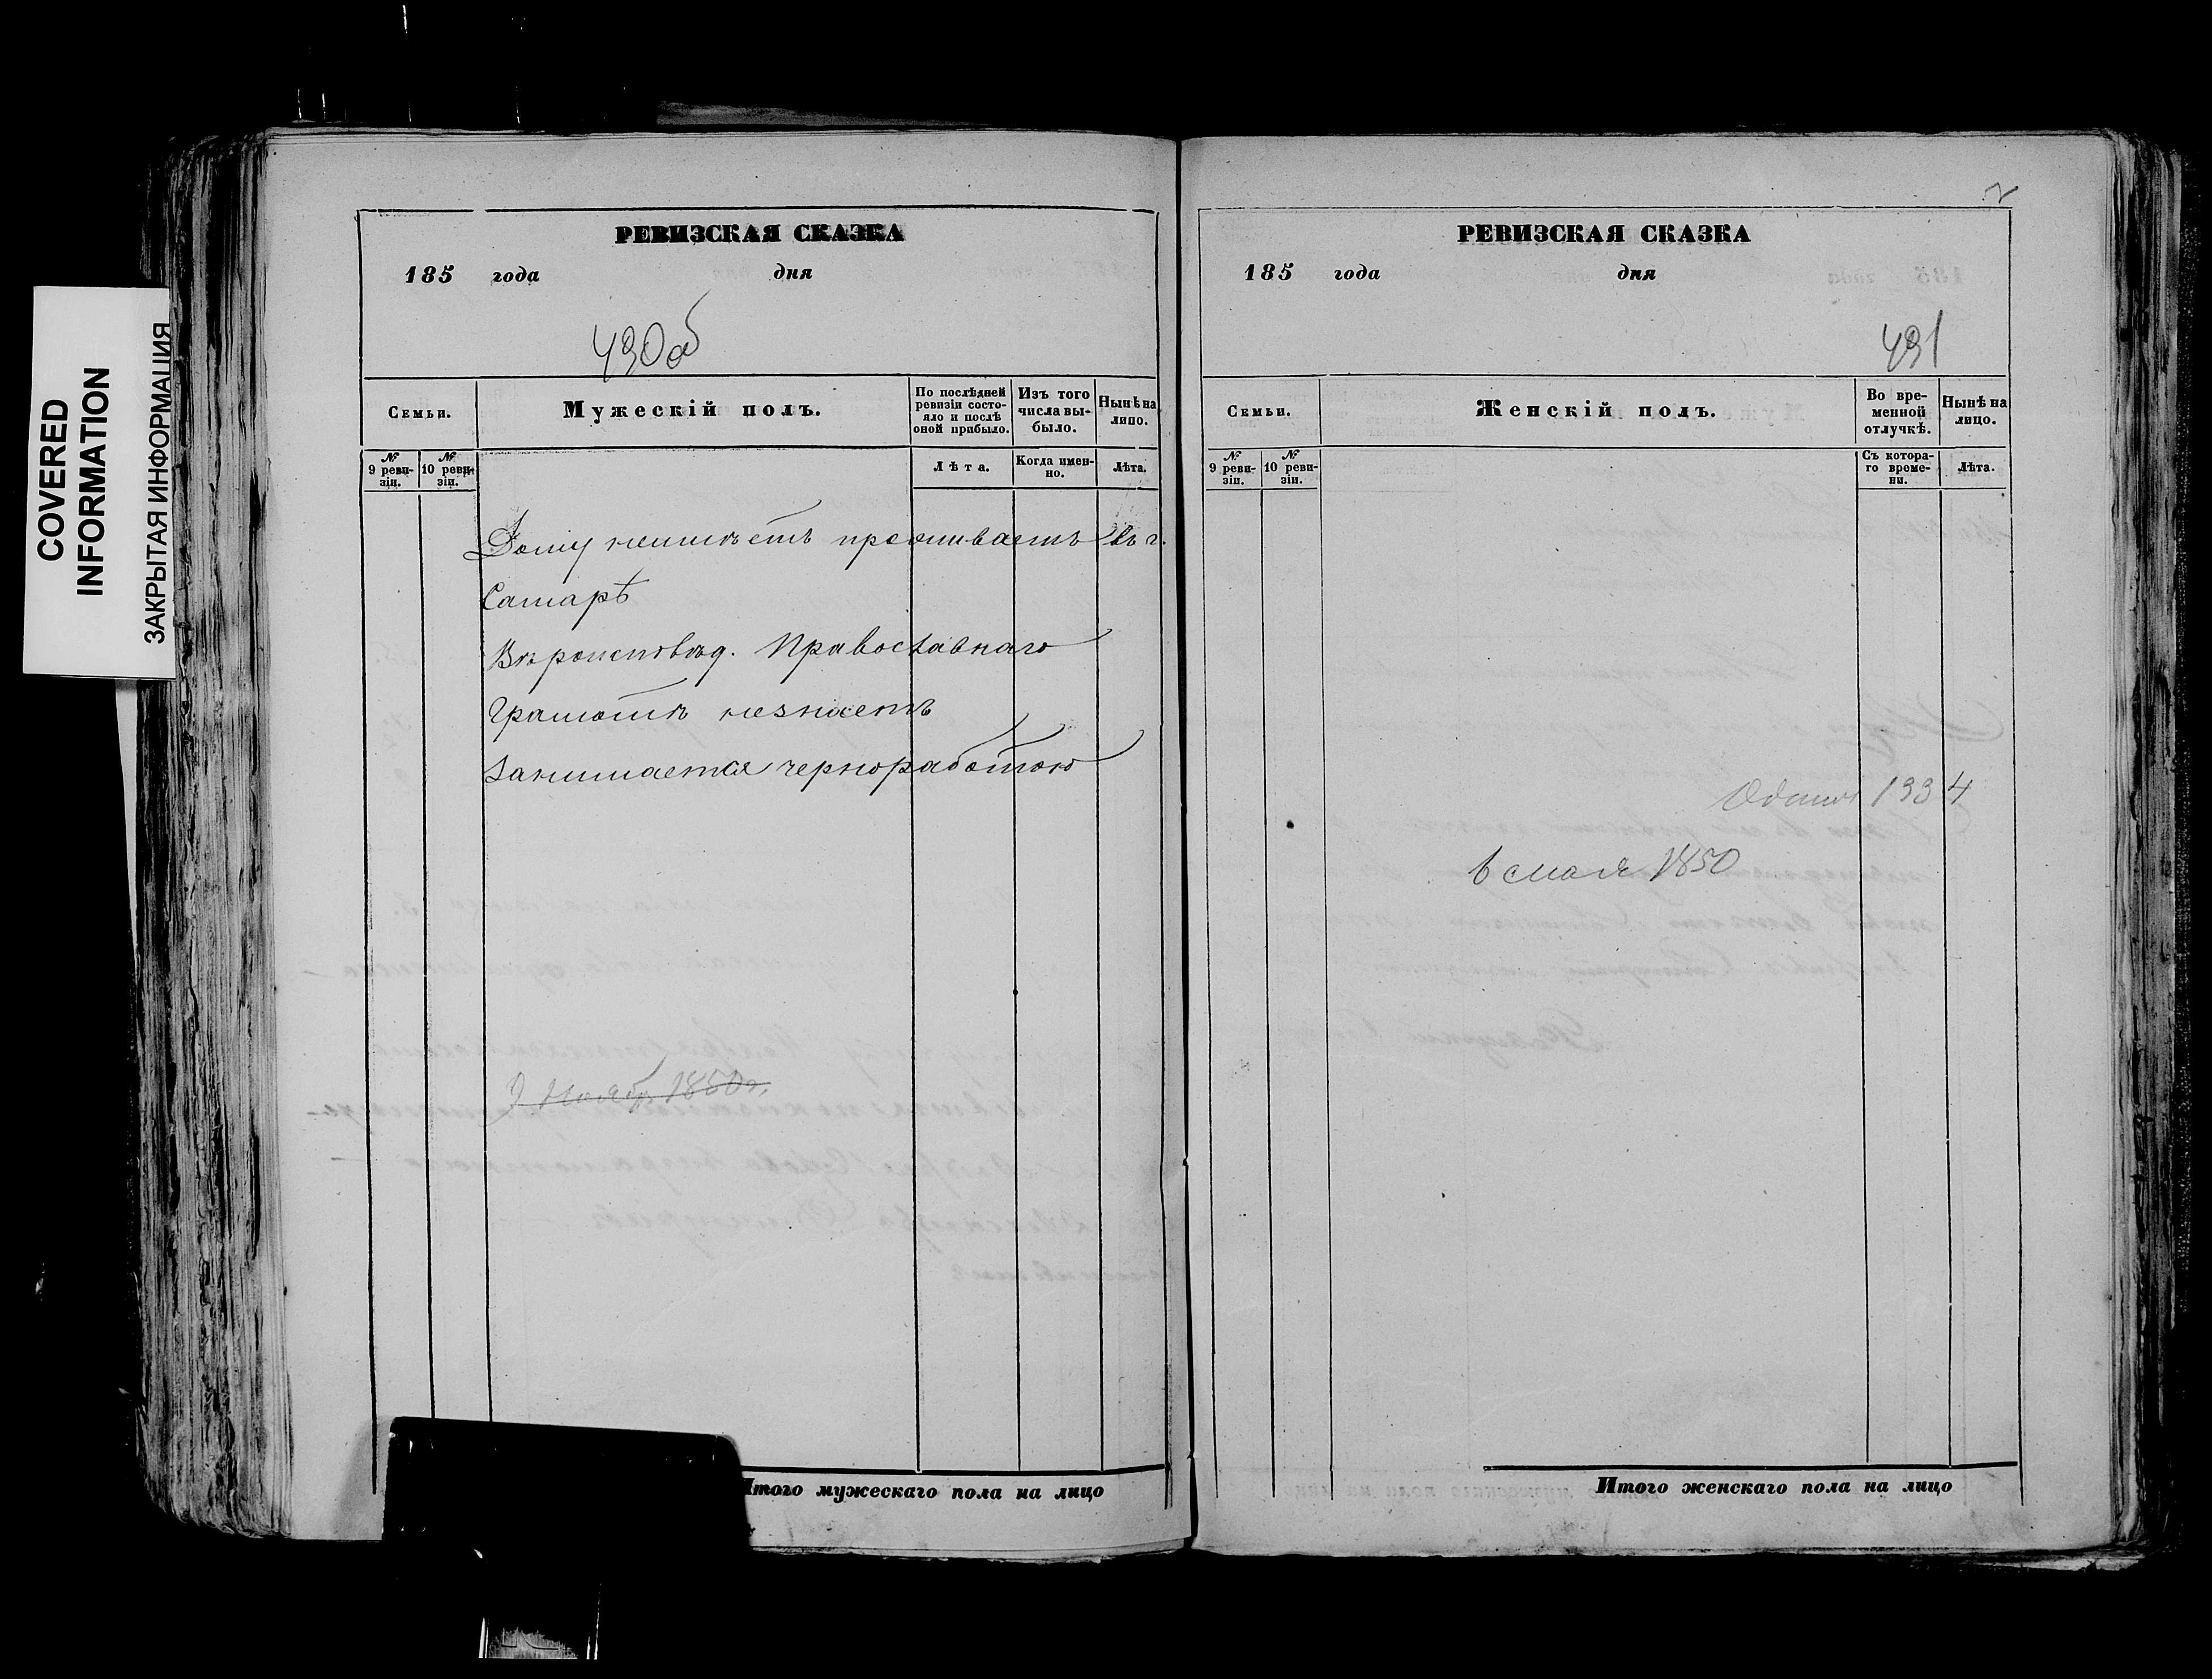 COVERED
INFORMATION
ЗАКРЫТАЯ ИНФОРМАЦИЯ
РЕВИЗСКАЯ СКАЗКА
185 года дня
430об
Семьи.
Мужескій полъ.
По послѣдней ревизіи состо-
яло и послѣ оной прибыло.
Изъ того числа вы-
было.
Нынѣ на лицо.
№ 9 реви-
зіи.
№ 10 реви-
зіи.
Лѣта.
Когда имен-
но.
Лѣта.
Дому неимѣетъ проживаетъ въ г.
Самарѣ
Вѣроисповѣд. Православнаго
Грамотѣ незнаетъ
Занимается чернорабоtою
9 Ноябр 1850 г.
Итого мужескаго пола на лицо
РЕВИЗСКАЯ СКАЗКА
185 года дня
431
Семьи.
Женскій полъ.
Во вре-
менной
отлучкѣ.
Нынѣ на
лицо.
№ 9 реви-
зіи.
№ 10 реви-
зіи.
Съ котора-
го време-
ни.
Лѣта.
1334
6 мая 1850
Итого женскаго пола на лицо